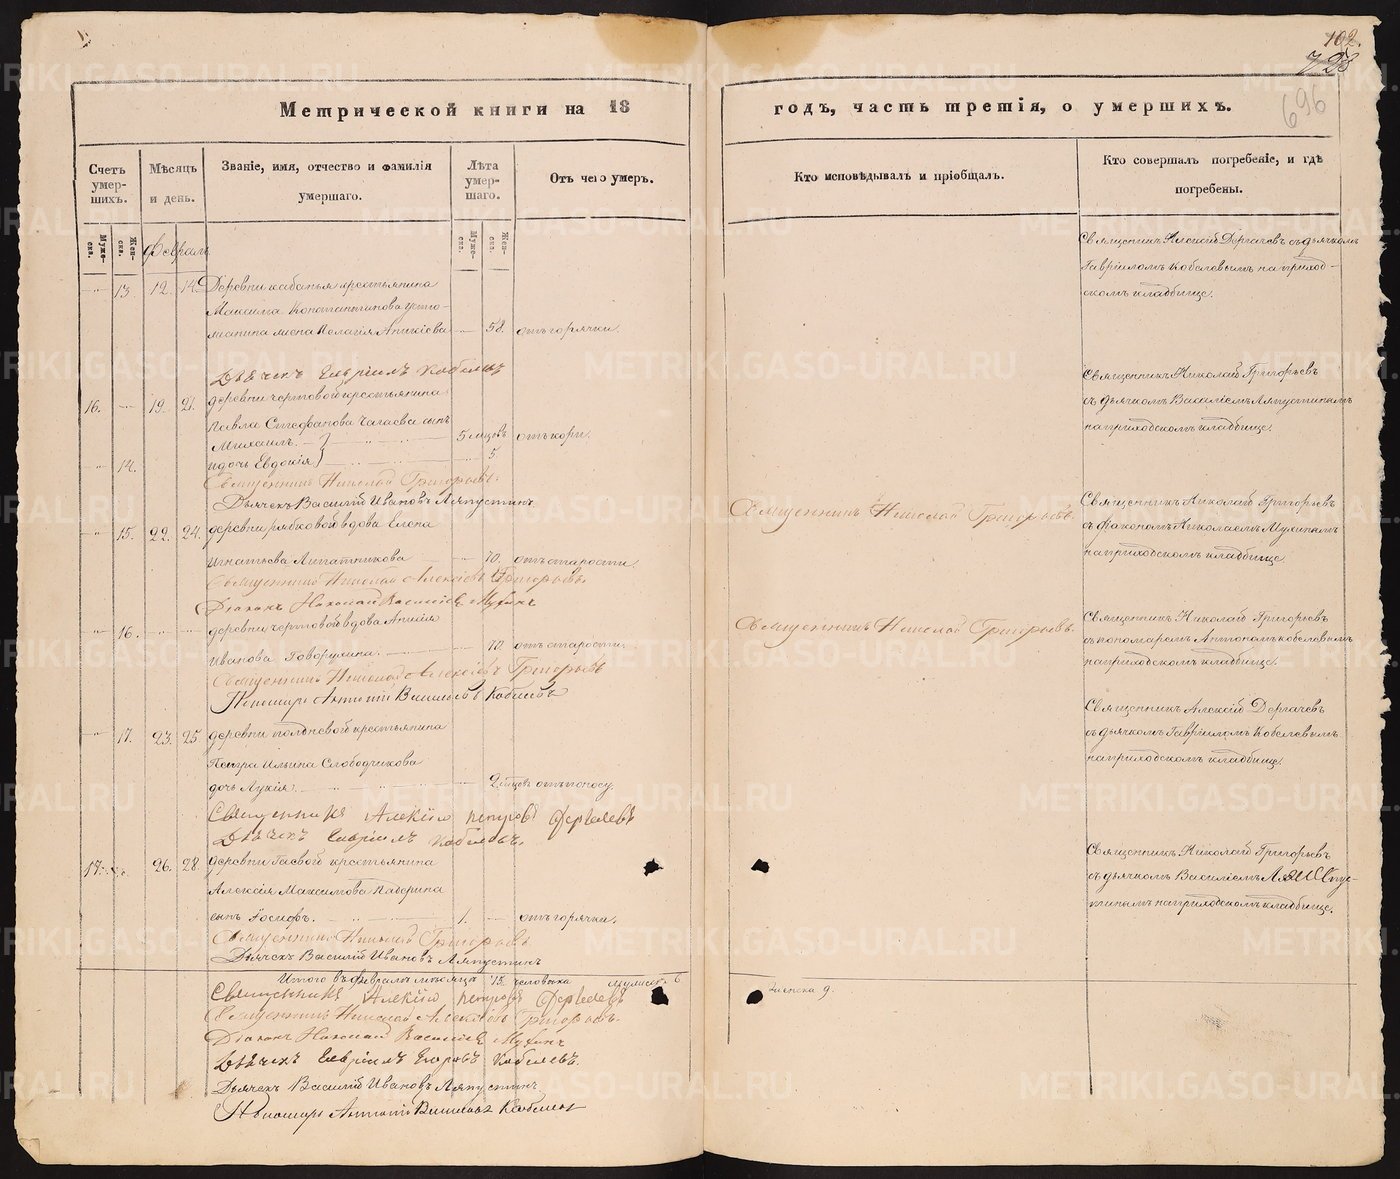 102.
696
Метрической книги на 18
годъ, часть третія, о умершихъ.
Счетъ умер-шихъ.
Мѣсяцъ и день.
Званіе, имя, отчество и фамилія умершаго.
Лѣта умер-шаго.
Отъ чего умеръ.
Кто исповѣдывалъ и пріобщалъ.
Кто совершалъ погребеніе, и гдѣ погребены.
Муже-ска.
Жен-ска.
Февраль
Муже-ска.
Жен-ска.
Священникъ Алексій Дергачевъ съ дьячкомъ
Гавріиломъ Кобелевымъ на приход-
скомъ кладбище.
13. 12. 14. Деревни кабанья крестьянина
Максима Константинова Усто-
жанина жена Пелагія Аникіева 58. отъ горячки.
Дьячекъ Гавріилъ Кобелевъ
16. 19. 21. деревни чертовой крестьянина
Павла Стефанова Чагаева сынъ
Михаилъ. 5 мцовъ отъ кори.
14. и дочь Евдокія 5.
Священникъ Николай Григорьевъ.
Дьячекъ Василій Ивановъ Ляпустинъ
Священникъ Николай Григорьевъ
съ дьячкомъ Василіемъ Ляпустинымъ
на приходскомъ кладбище.
15. 22. 24. деревни рябковой вдова Елена
Игнатьева Липатникова 70. отъ старости.
Священникъ Николай Алексіевъ Григорьевъ.
Діаконъ Николай Василіевъ Мухинъ
Священникъ Николай Григорьевъ.
Священникъ Николай Григорьевъ
съ діакономъ Николаемъ Мухинымъ
на приходскомъ кладбище
16. деревни чертовой вдова Анисія
Иванова Говорухина. 70. отъ старости.
Священникъ Николай Алексіевъ Григорьевъ
Пономарь Антоній Василіевъ Кобелевъ
Священникъ Николай Григорьевъ.
Священникъ Николай Григорьевъ
съ пономаремъ Антономъ Кобелевымъ
на приходскомъ кладбище.
17. 23. 25. деревни полдневой крестьянина
Петра Ильина Слободчикова
дочь Лукія. 2 мцовъ отъ поносу.
Священникъ Алексій Петровъ Дергачевъ
Дьячекъ Гавріилъ Кобелевъ.
Священникъ Алексій Дергачевъ
съ дьячкомъ Гавріиломъ Кобелевымъ
на приходскомъ кладбище.
17. 26. 28. деревни Гаевой крестьянина
Алексія Максимова Паберина
сынъ Іосифъ. 1. отъ горячки.
Священникъ Николай Григорьевъ
Дьячекъ Василій Ивановъ Ляпустинъ
Священникъ Николай Григорьевъ
съ дьячкомъ Василіемъ Ляпус-
тинымъ на приходскомъ кладбище.
Итого въ февралѣ мѣсяцѣ 15. человѣка мужеска 6
женска 9.
Священникъ Алексій Петровъ Дергачевъ
Священникъ Николай Алексіевъ Григорьевъ.
Діаконъ Николай Василіевъ Мухинъ
Дьячекъ Гавріилъ Егоровъ Кобелевъ.
Дьячекъ Василій Ивановъ Ляпустинъ
Пономарь Антоній Василіевъ Кобелевъ
METRIKI.GASO-URAL.RU